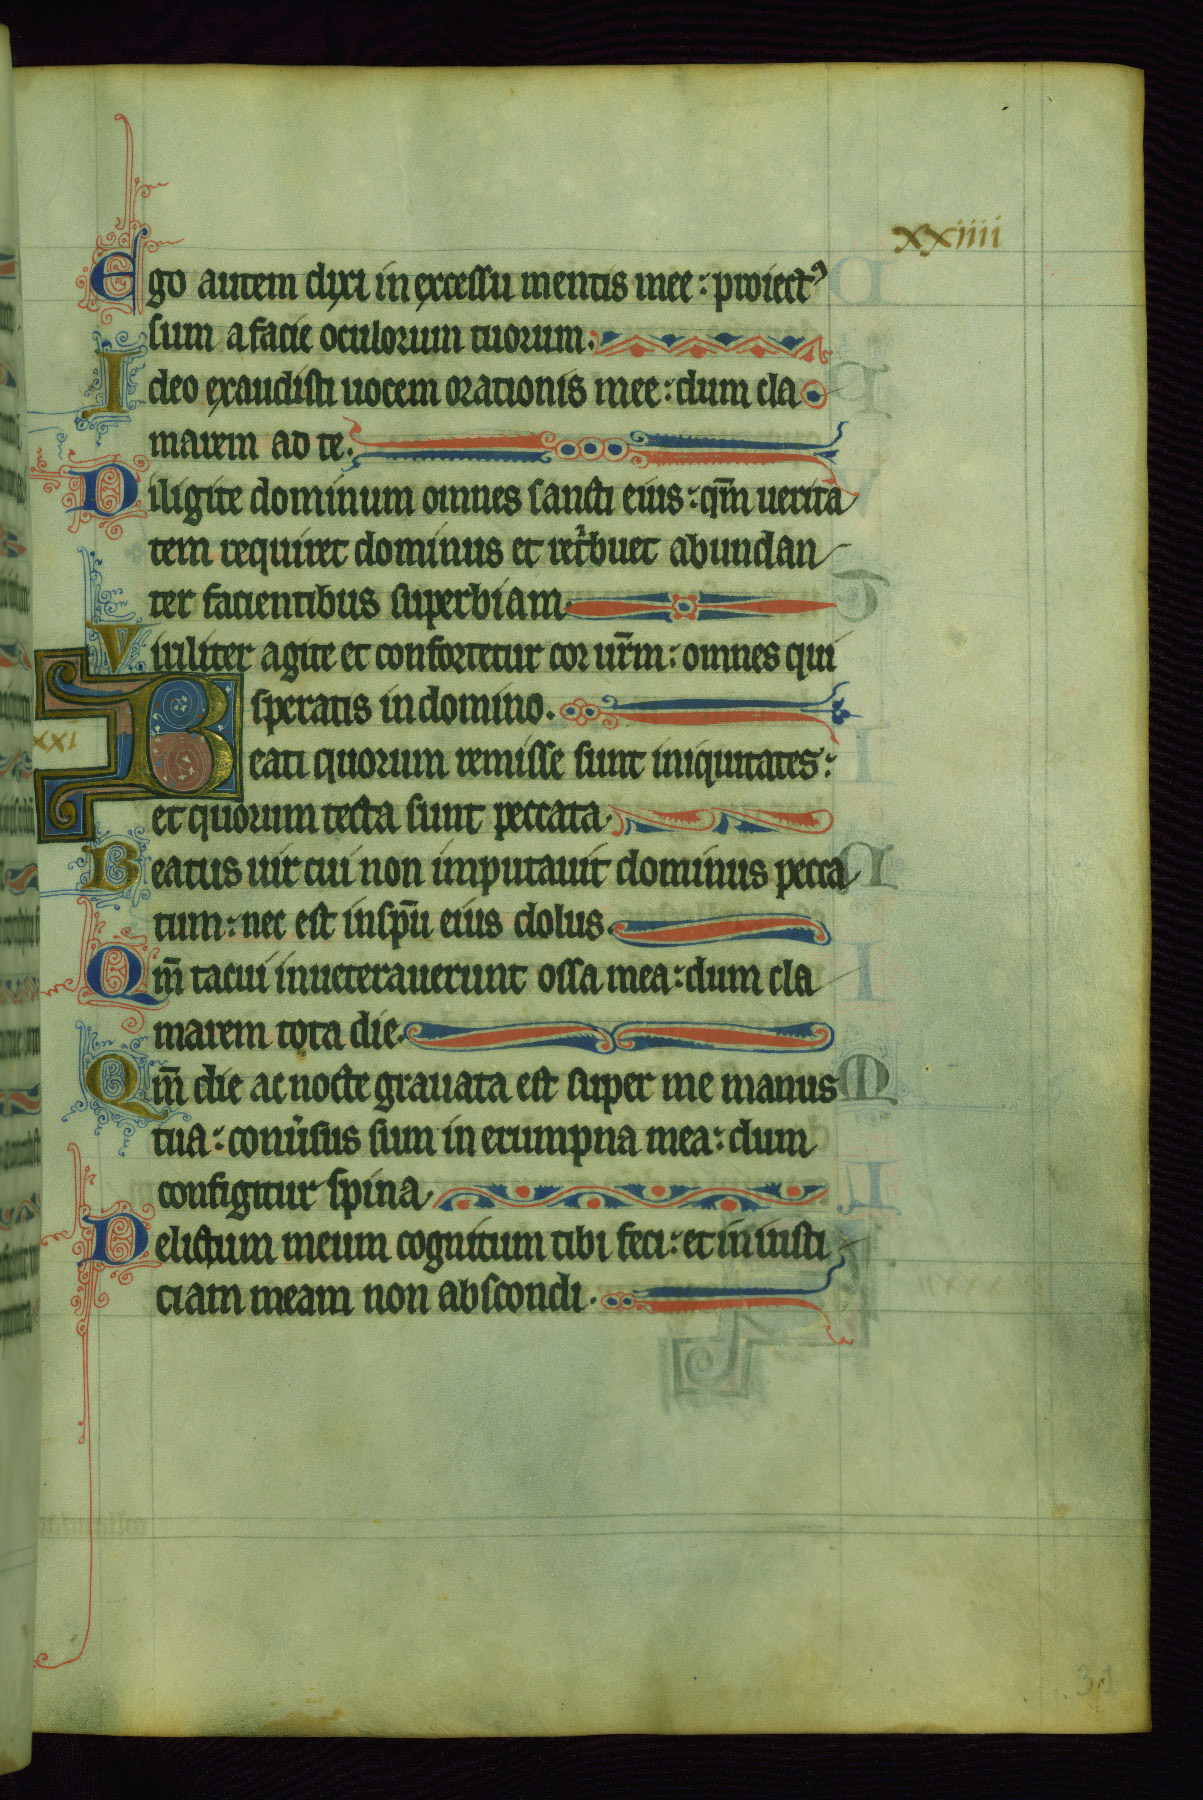 xxiiii
Ego autem dixi in excessu mentis mee: proiectꝰ
sum a facie oculorum tuorum.
Ideo exaudisti uocem orationis mee: dum cla
marem ad te.
Diligite dominum omnes sancti eius: qm̄ uerita
tem requiret dominus et ret'buet abundan
ter facientibus superbiam.
Viriliter agite et confortetur cor ur̄m: omnes qui
speratis in domino.
xxxi
Beati quorum remisse sunt iniquitates:
et quorum tecta sunt peccata.
Beatus uir cui non imputauit dominus pecca
tum: nec est in spū eius dolus.
Qm̄ tacui inueterauerunt ossa mea: dum cla
marem tota die.
Qm̄ die ac nocte grauata est super me manus
tua: conu'sus sum in erumpna mea: dum
configitur spina.
Delictum meum cognitum tibi feci: et iniusti
ciam meam non abscondi.
31